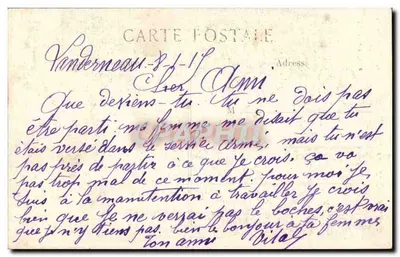 CARTE POSTALE
Landerneau 8-1-15
Adresse
Cher Ami
Que deviens-tu. tu ne dois pas
être parti, ma femme me disait que tu
étais versé dans le service armé, mais tu n'est
pas près de partir à ce que je crois. Ça va
pas trop mal de ce moment, pour moi je
suis à la manutention à travailler je crois
bien que je ne verrai pas le boches, c'est mai
que j'n'y tiens pas. bien le bonjour à ta femme,
ton ami Vital